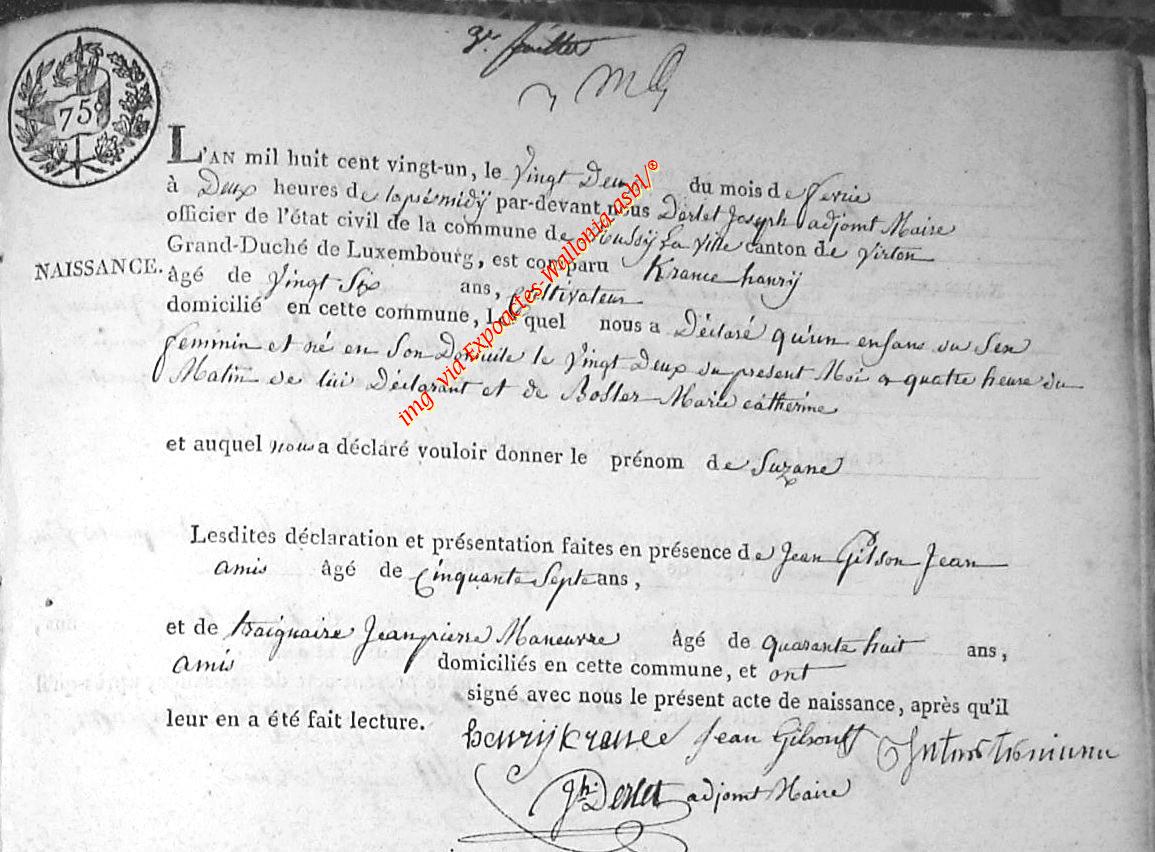 3e. feuillet
75
L'AN mil huit cent vingt-un, le Vingt Deux du mois de fevrie
à Deux heures de lapremidÿ par-devant nous Derlet Joseph adjoint Maire
officier de l'état civil de la commune de Mussÿ La ville canton de Virton
Grand-Duché de Luxembourg, est comparu Krance hanrÿ
NAISSANCE.
âgé de Vingt Six ans, Cultivateur
domicilié en cette commune, Le quel nous a Déclaré qu'un enfans du Sex
feminin et né en Son Domicile le Vingt Deux du present Moi a quatte heure du
Matin de lui Déclarant et de Bosler Marie catherine
et auquel nous a déclaré vouloir donner le prénom de Suzane
Lesdites déclaration et présentation faites en présence de Jean Gilson Jean
amis âgé de Cinquante Septe ans,
et de Jeanpierre Maneuvre âgé de quarante huit ans,
amis domiciliés en cette commune, et ont
signé avec nous le présent acte de naissance, après qu'il
leur en a été fait lecture.
henrÿ krance Jean Gilson
Jh. Derlet adjoint Maire
img via Expoactes-Wallonia asbl/®